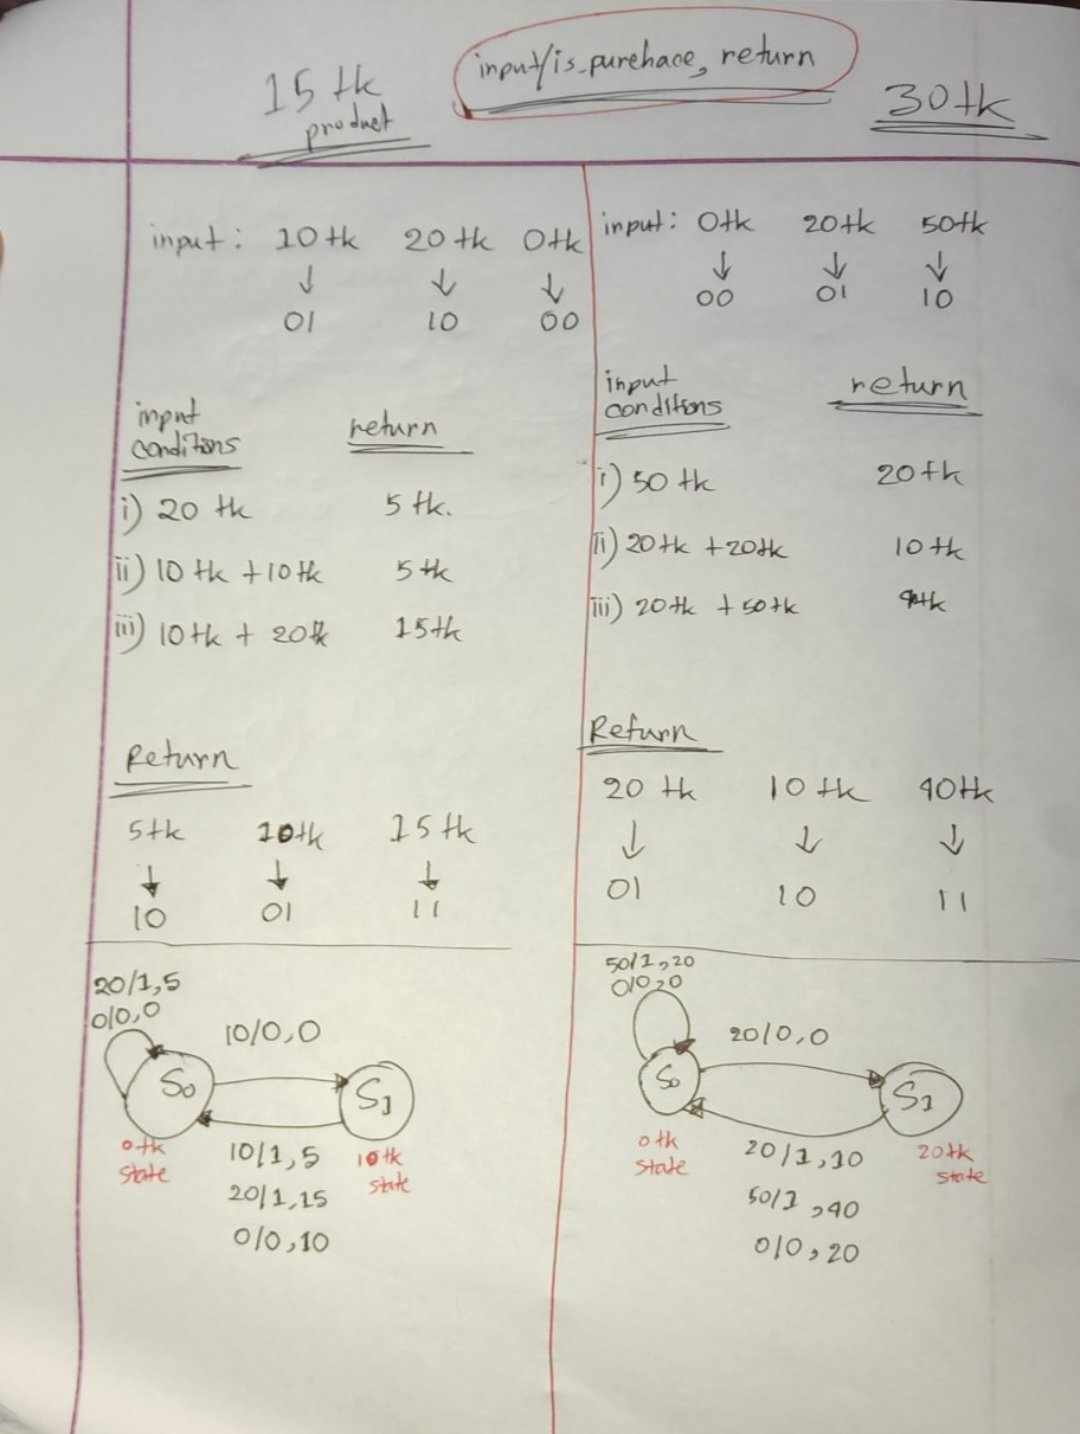 15 tk
product
input/is_purchace, return
30tk
input: 10tk 20tk 0tk
↓ ↓ ↓
01 10 00
input
conditions
return
i) 20 tk 5 tk.
ii) 10 tk +10tk 5tk
iii) 10tk + 20tk 15tk
Return
5tk 10tk 15tk
↓ ↓ ↓
10 01 11
20/1,5
0/0,0
10/0,0
S0
S1
0tk
state
10tk
state
10/1,5
20/1,15
0/0,10
input: 0tk 20tk 50tk
↓ ↓ ↓
00 01 10
input
conditions
return
i) 50 tk 20tk
ii) 20tk +20tk 10tk
iii) 20tk + 50tk
Return
20 tk 10tk 40tk
↓ ↓ ↓
01 10 11
50/1,20
0/0,0
20/0,0
S0
S1
0tk
state
20tk
state
20/1,10
50/1,40
0/0,20